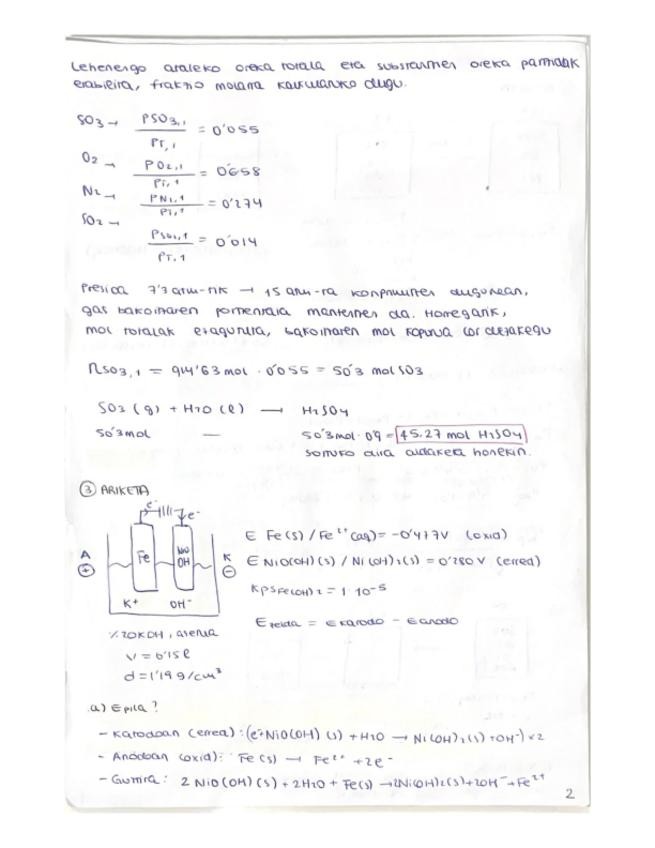 Lehenengo ataleko oreka totala eta substantzien oreka partzialak
erabilita, frakzio molarra kalkulatuko dugu.
SO3 → PSO3,1 / PT,1 = 0'055
O2 → PO2,1 / PT,1 = 0'658
N2 → PN2,1 / PT,1 = 0'274
SO2 → PSO2,1 / PT,1 = 0'014
Presioa 7'3 atm-tik → 15 atm-ra konprimitzen dugunean,
gas bakoitzaren portzentaia mantentzen da. Horregatik,
mol totalak ezagututa, bakoitzaren mol kopurua lor dezakegu
nSO3,1 = 914'63 mol · 0'055 = 50'3 mol SO3
SO3 (g) + H2O (l) → H2SO4
50'3 mol — 50'3 mol · 0'9 = 45.27 mol H2SO4
sortuko dira aldaketa honekin.
③ ARIKETA
e- e-
A Fe NiO OH K
⊕ ⊖
K+ OH-
E Fe(s) / Fe2+ (aq) = -0'477V (oxid)
E NiO(OH)(s) / Ni(OH)2(s) = 0'280 V (erred)
KPS Fe(OH)2 = 1 · 10-5
E zelda = E katodo - E anodo
% 20 KOH, asetua
V = 0'15 l
d = 1'19 g/cm3
a) E pila?
- Katodoan (erred) : (e-+NiO(OH) (s) + H2O → Ni(OH)2(s) + OH-) x2
- Anodoan (oxid) : Fe(s) → Fe2+ + 2e-
- Guztira : 2 NiO(OH)(s) + 2H2O + Fe(s) → 2Ni(OH)2(s) + 2OH- + Fe2+
2